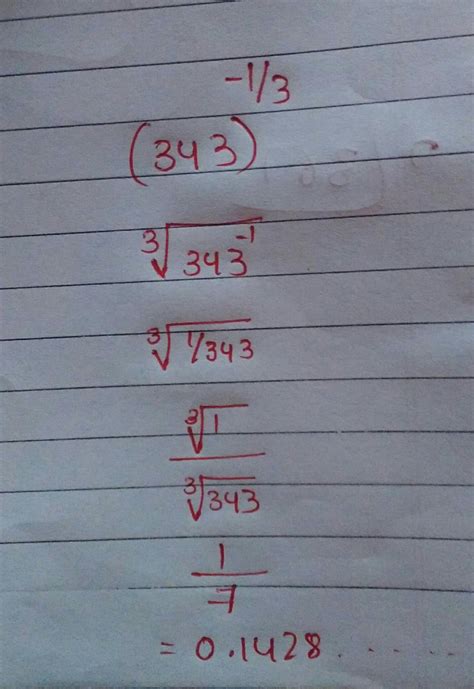 (343)^{-1/3}
∛343^{-1}
∛1/343
∛1
∛343
1
7
= 0.1428......